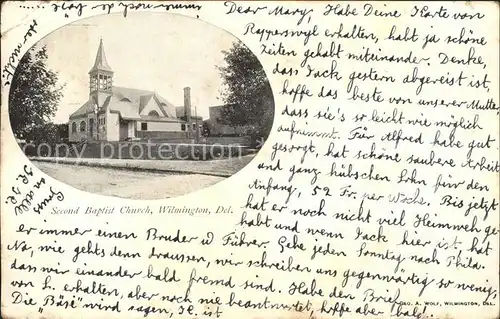 Dear Mary, Habe Deine Karte von
Rapperswyl erhalten, habt ja schöne
Zeiten gehabt miteinander. Denke,
dass Jack gestern abgereist ist,
hoffe das beste von unserer Mutter
dass sie's so leicht wie möglich
aufnimmt. Für Alfred habe gut
gesorgt, hat schöne saubere Arbeit
und ganz hübschen Lohn für den
Anfang, 52 Fr. per Woche. Bis jetzt
hat er noch nicht viel Heimweh ge-
habt und wenn Jack hier ist, hat
er immer einen Bruder u. Führer. Gehe jeden Sonntag nach Phila.
Na, wie gehts denn draussen, wir schreiben uns gegenwärtig so wenig,
dass wir einander bald fremd sind. Habe den Brief
von L. erhalten, aber noch nie beantwortet, hoffe aber bald.
Die "Bäse" wird sagen, H. ist
Second Baptist Church, Wilmington, Del.
GEO. A. WOLF, WILMINGTON, DEL.
Gruss
an alle
© delcampe.net